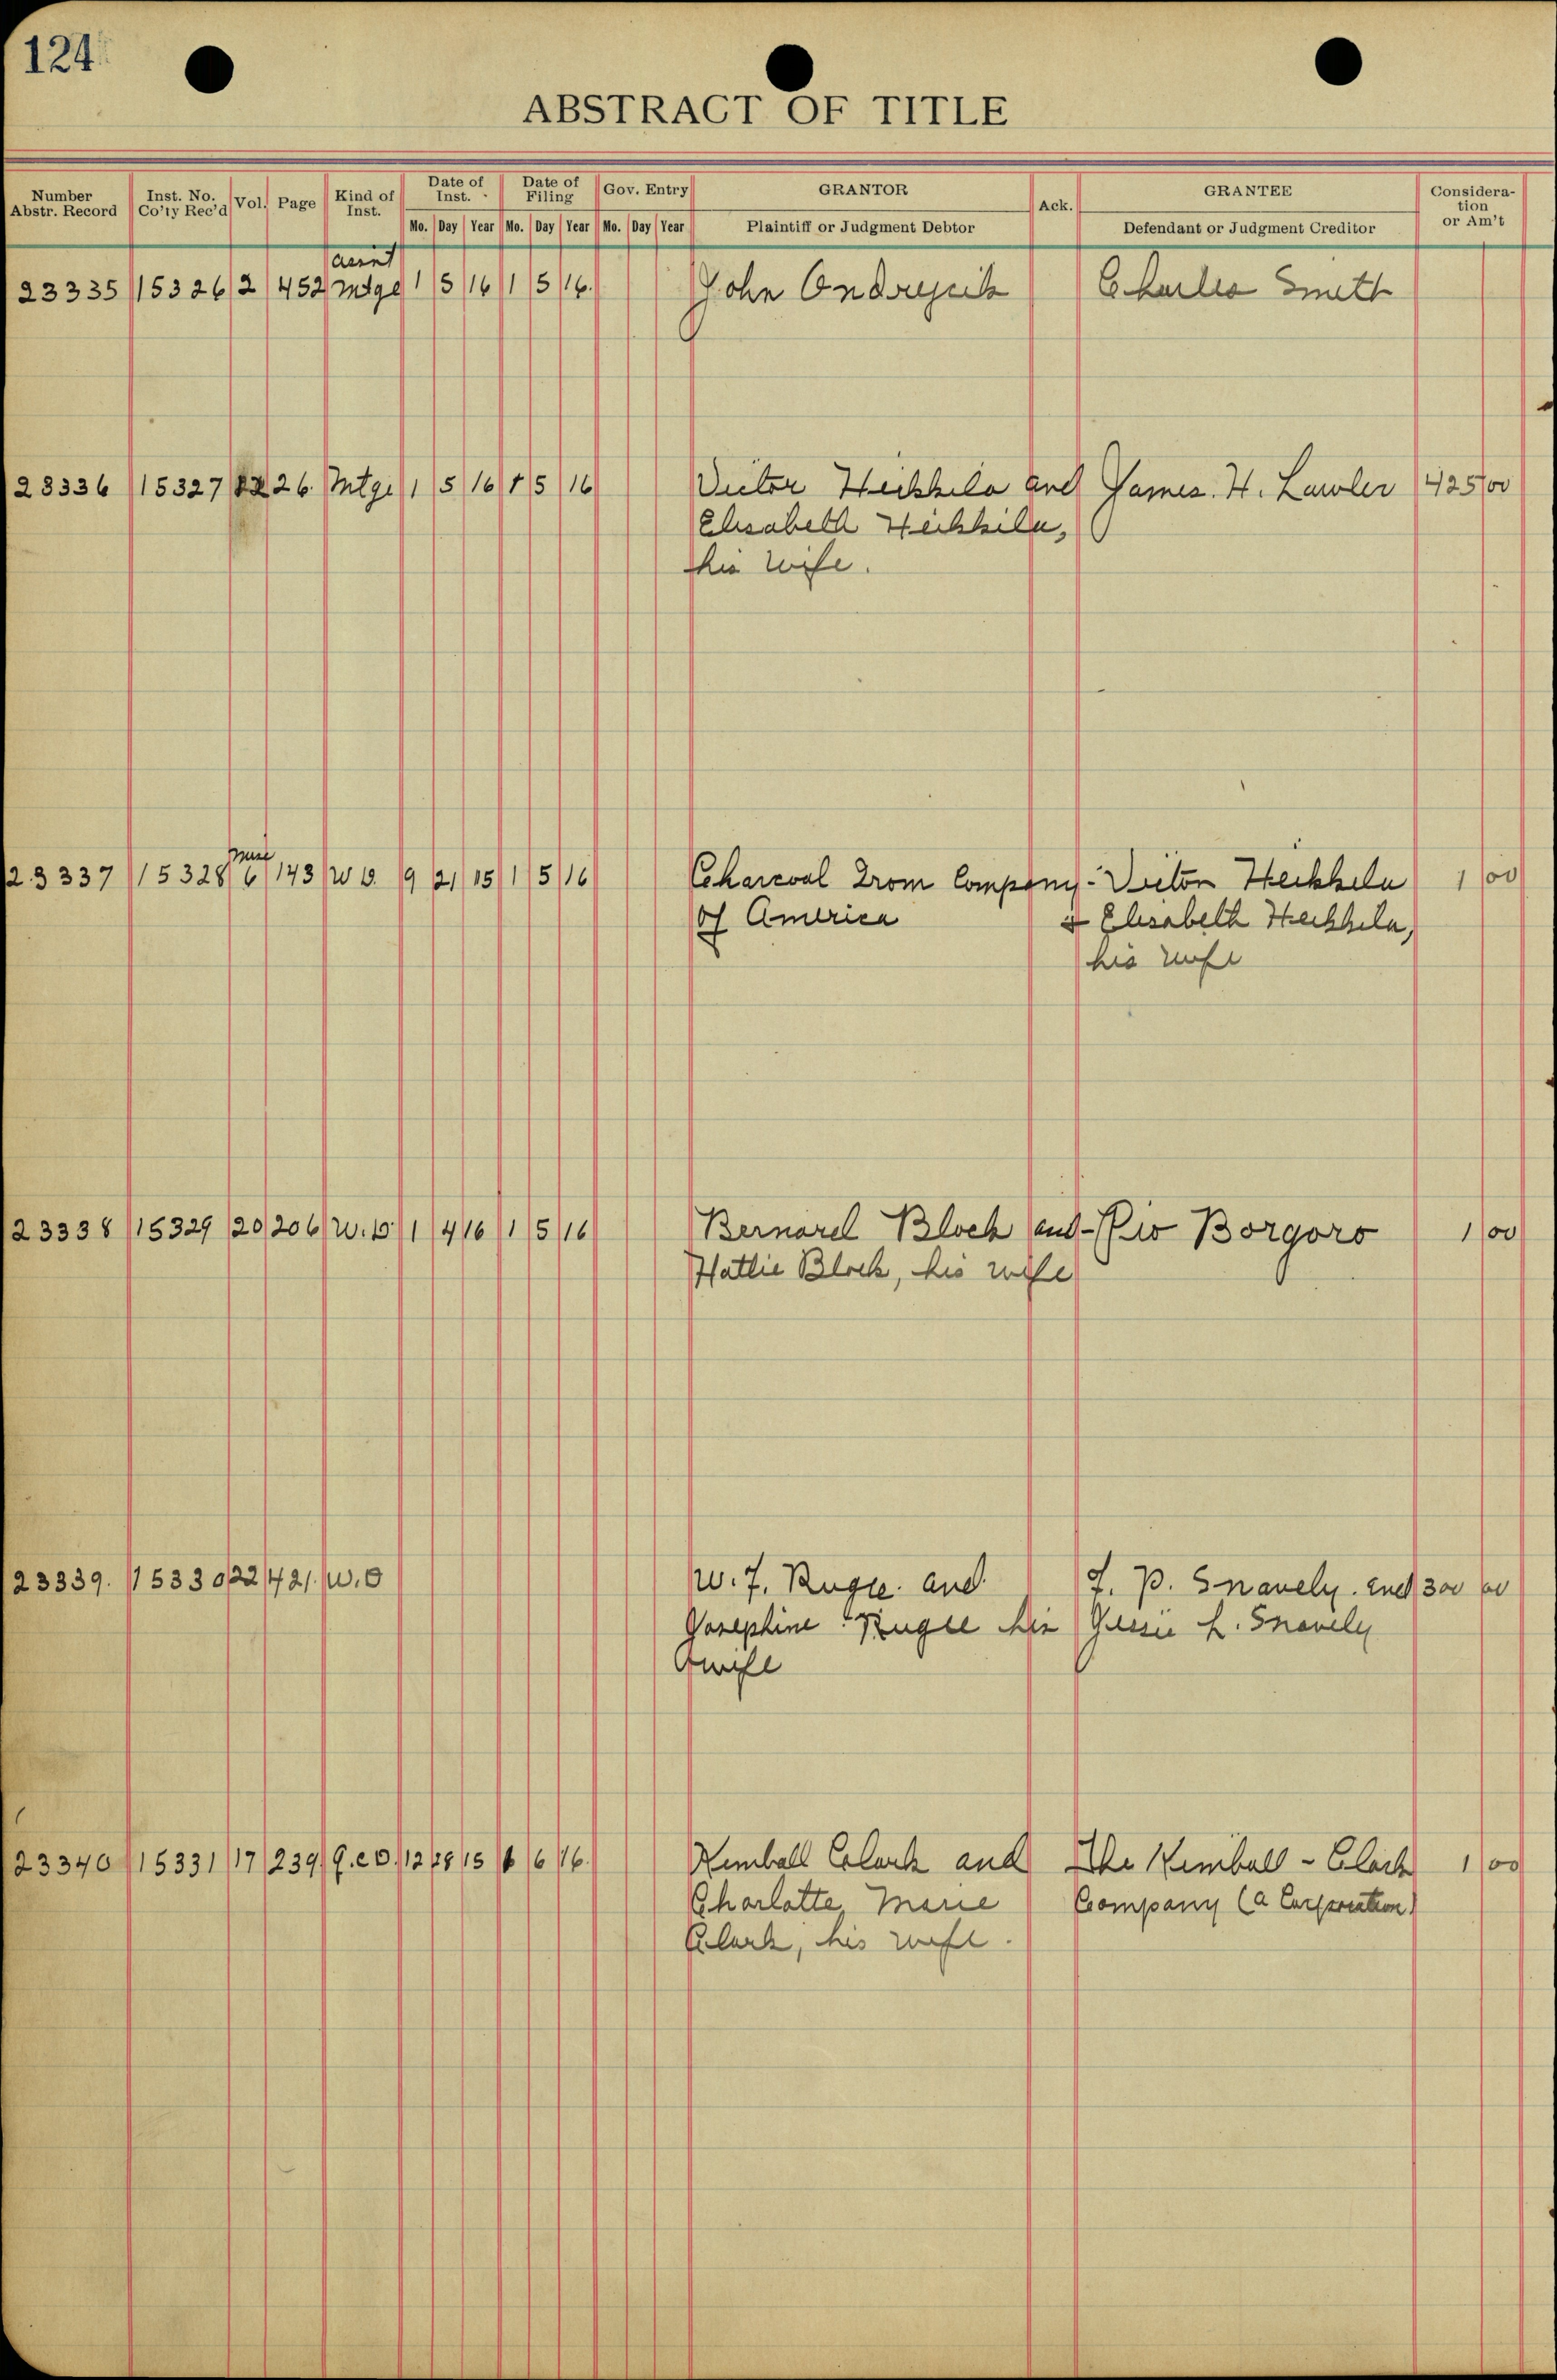 124
ABSTRACT OF TITLE
Number Abstr. Record Inst. No. Co'ty Rec'd Vol. Page Kind of Inst. Date of Inst. Date of Filing Gov. Entry GRANTOR Ack. GRANTEE Consideration or Am't
Mo. Day Year Mo. Day Year Mo. Day Year Plaintiff or Judgment Debtor Defendant or Judgment Creditor
23335 15326 2 452 Mtge 1 5 16 1 5 16. John Ondrejcik Charles Smith
23336 15327 26. Mtge 1 5 16 1 5 16 Victor Heikkila and James. H. Lawler 425 00
Elisabeth Heikkila,
his wife.
23337 15328 6 143 W D. 9 21 15 1 5 16 Charcoal Iron Company - Victor Heikkila 1 00
of America & Elisabeth Heikkila,
his wife
23338 15329 20 206 W. D. 1 4 16 1 5 16 Bernard Bloch and - Pio Borgoro 1 00
Hattie Bloch, his wife
23339. 15330 22 421. W. D W. F. Rugee. and J. P. Snavely. and 300 00
Josephine Rugee his Jessie L. Snavely
wife
23340 15331 17 239 Q. C D. 12 28 15 1 6 16. Kimball Clark and The Kimball - Clark 1 00
Charlotte Marie Company (a Corporation)
Clark, his wife.